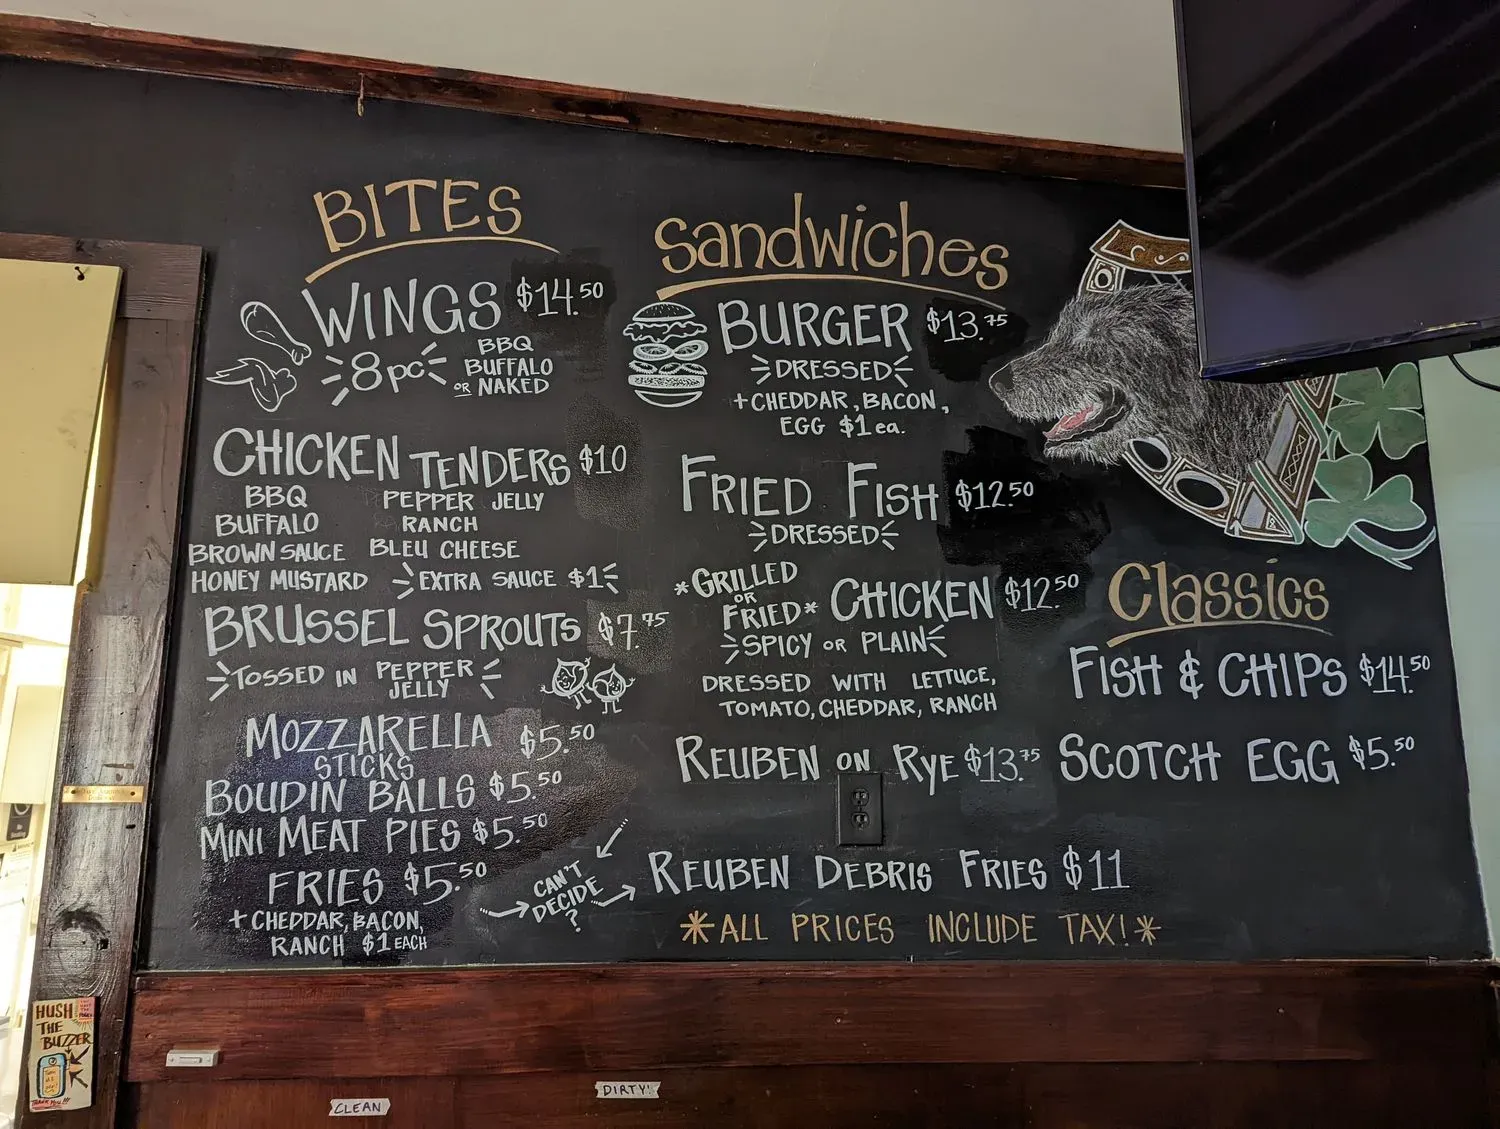 BITES
WINGS $14.50
8pc
BBQ
BUFFALO
OR NAKED
CHICKEN TENDERS $10
BBQ
BUFFALO
BROWN SAUCE
HONEY MUSTARD
PEPPER JELLY
RANCH
BLEU CHEESE
EXTRA SAUCE $1
BRUSSEL SPROUTS $7.75
TOSSED IN PEPPER
JELLY
MOZZARELLA $5.50
STICKS
BOUDIN BALLS $5.50
MINI MEAT PIES $5.50
FRIES $5.50
+ CHEDDAR, BACON,
RANCH $1 EACH
CAN'T
DECIDE
?
Sandwiches
BURGER $13.75
DRESSED
+ CHEDDAR, BACON,
EGG $1 ea.
FRIED FISH $12.50
DRESSED
*GRILLED
OR
FRIED* CHICKEN $12.50
SPICY OR PLAIN
DRESSED WITH LETTUCE,
TOMATO, CHEDDAR, RANCH
REUBEN ON RYE $13.75
REUBEN DEBRIS FRIES $11
*ALL PRICES INCLUDE TAX!*
Classics
FISH & CHIPS $14.50
SCOTCH EGG $5.50
HUSH
THE
BUZZER
THANK YOU!!!
CLEAN
DIRTY!